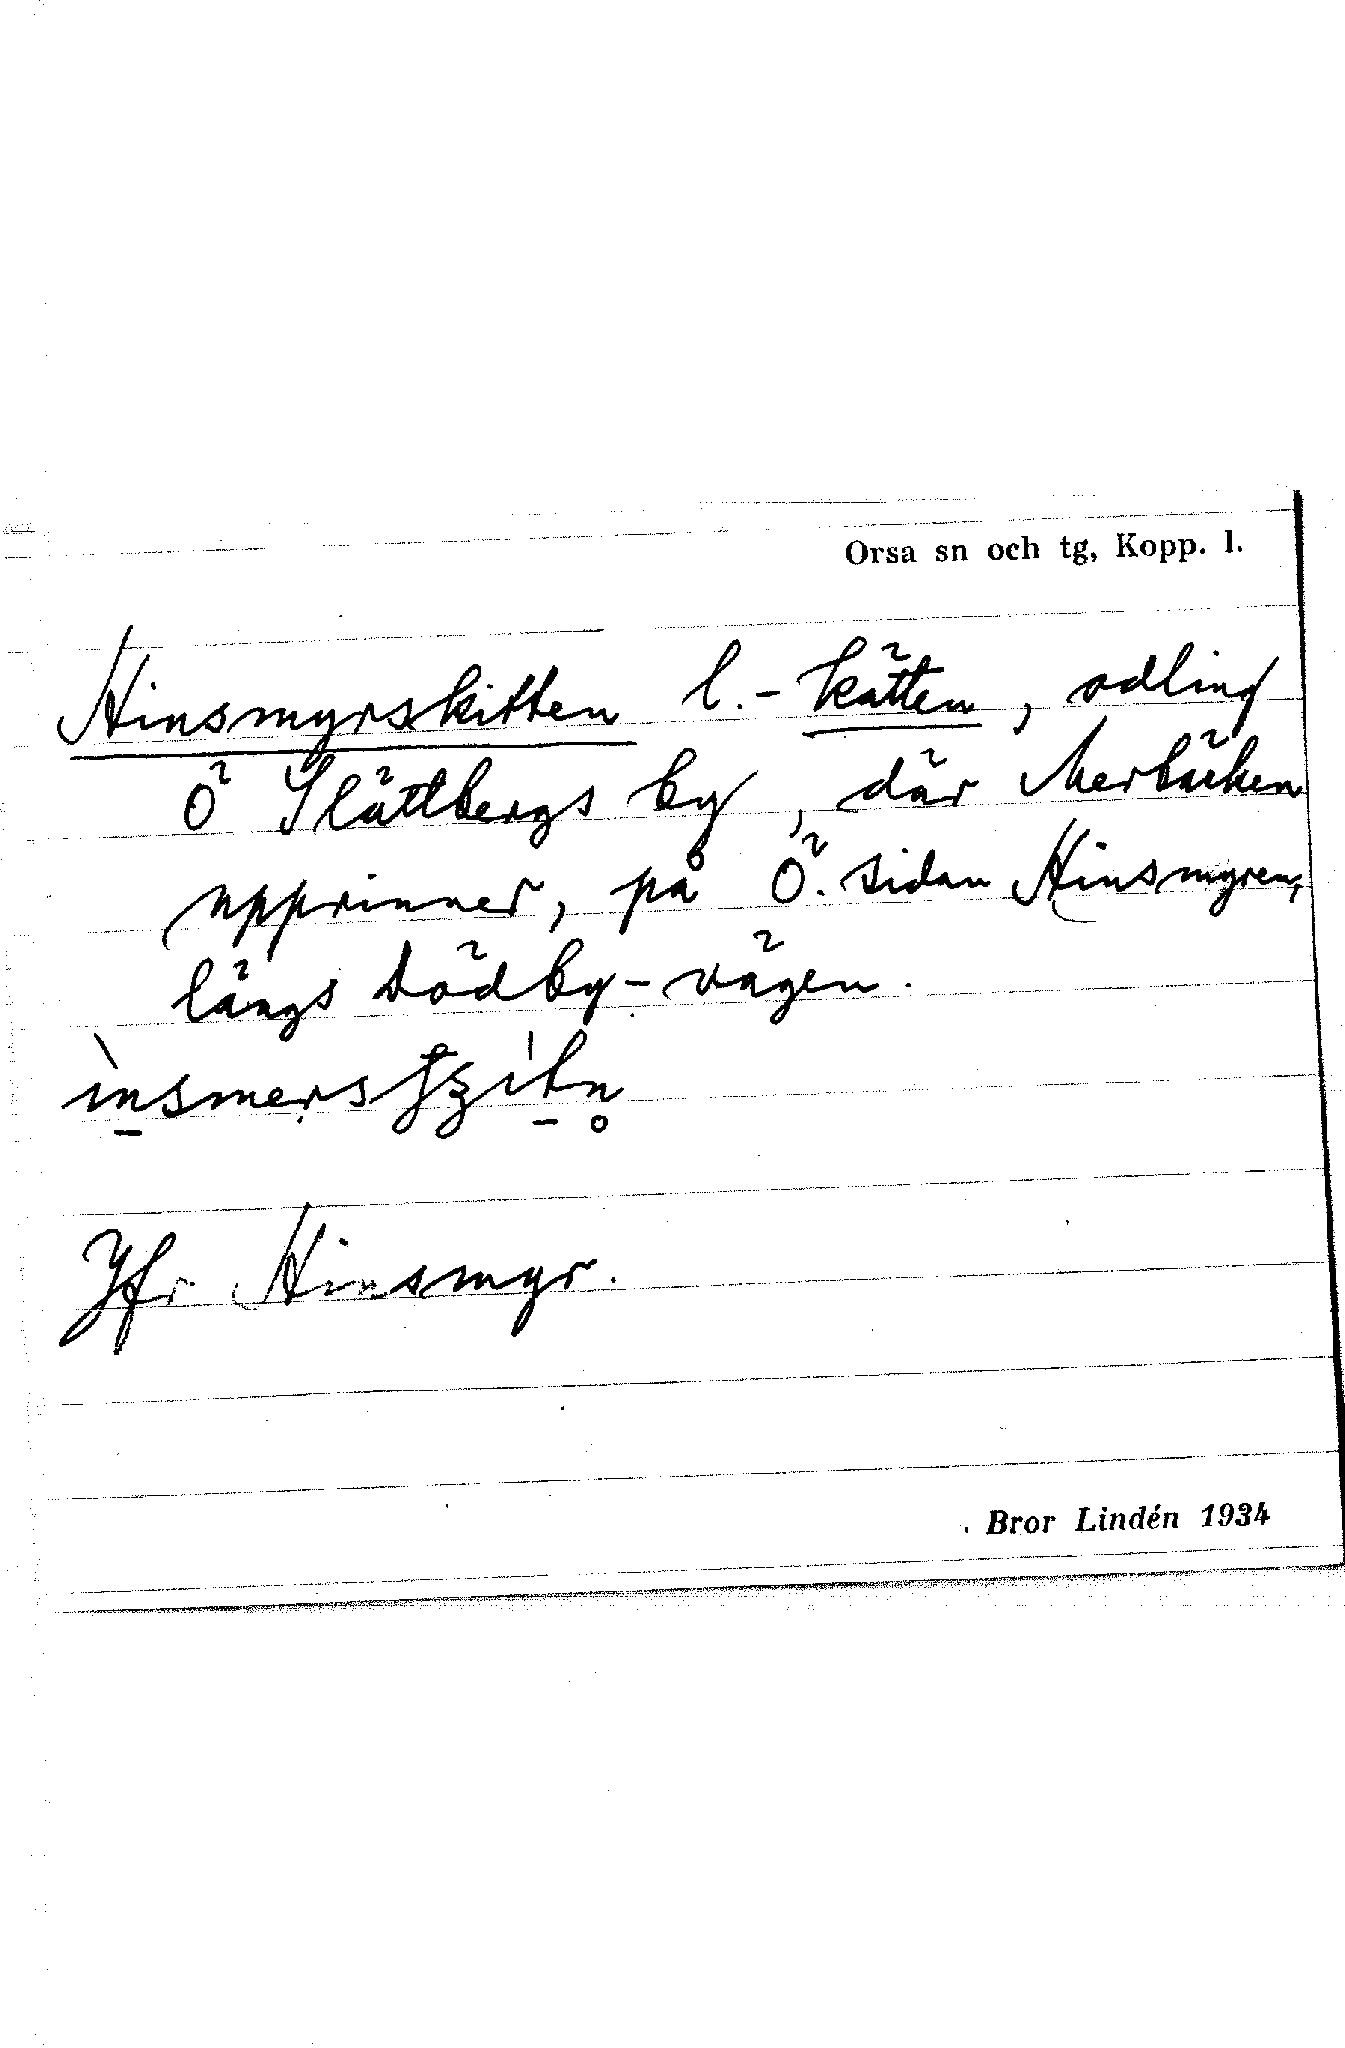 Orsa sn och tg, Kopp. l.
Hinsmyrskitten l. -kätten, odling
Ö Slättbergs by, där Merbäcken
upprinner, på Ö. sidan Hinsmyren,
längs Dödby-vägen.
Jfr Hinsmyr.
Bror Lindén 1934